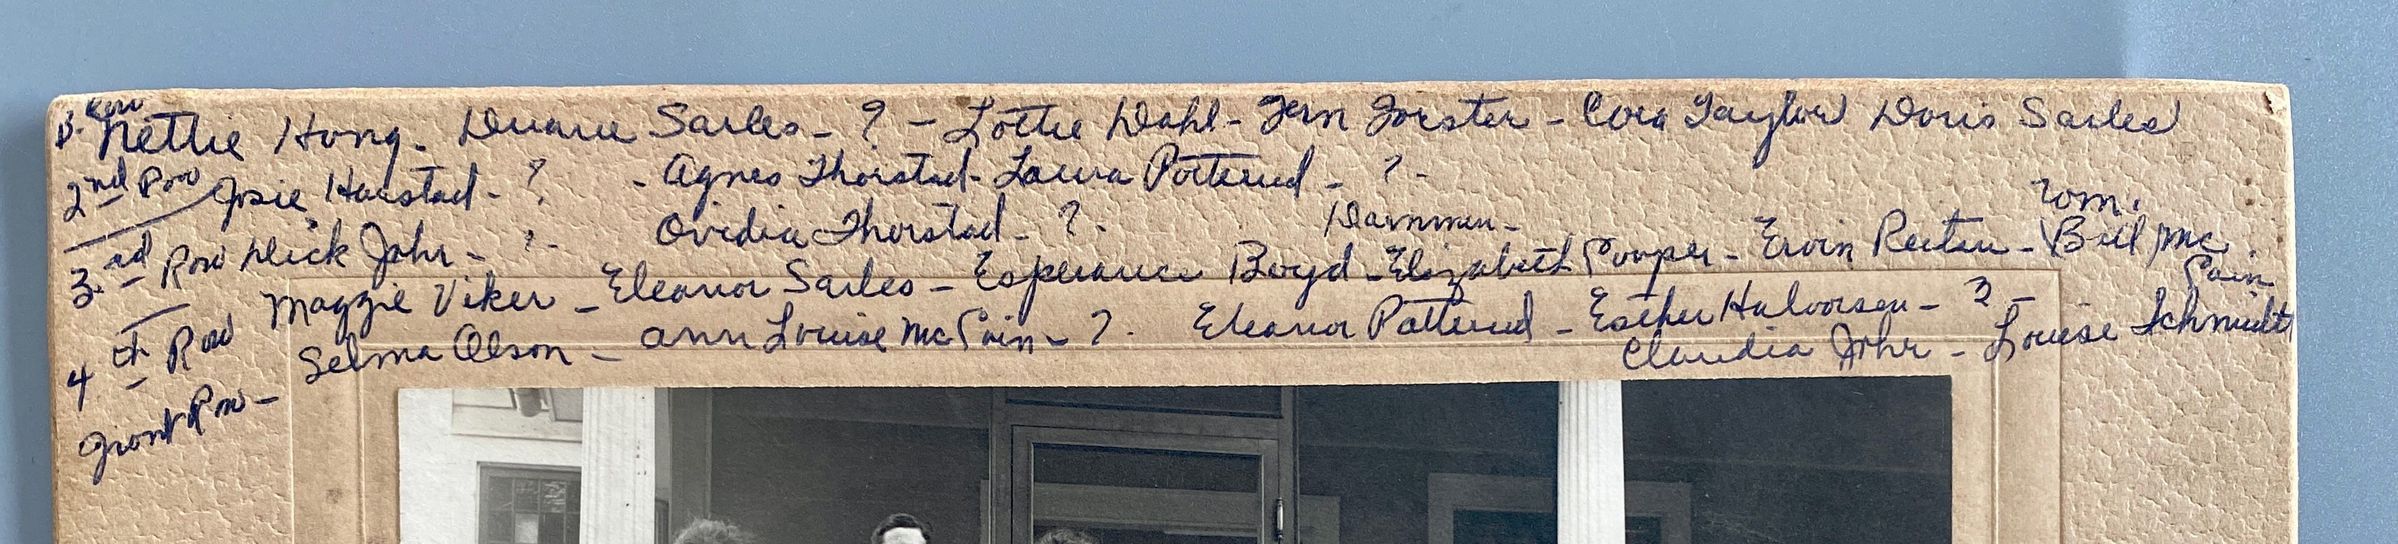 1. Row Nettie Hong. Duane Sarles - ? - Lottie Dahl - Fern Forster - Cora Taylor Doris Sarles
2nd Row Josie Harstad - ? - Agnes Thorstad - Laura Potterud - ? -
3rd Row Dick Johr - ? - Ovidia Thorstad - ? - Dammen - Tom.
4th Row Maggie Viker - Eleanor Sarles - Esperance Boyd - Elizabeth Cooper - Ervin Reiten - Bill Mc Cain
Front Row - Selma Olson - Ann Louise McCain - ? . Eleanor Potterud - Esther Halvorsen - ? -
Claudia Johr - Louise Schmidt